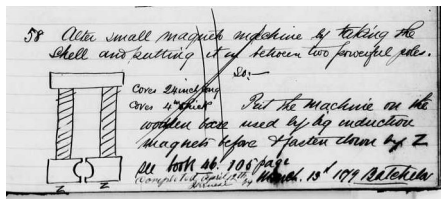 58 Alter small magneto machine by taking the
shell and putting it in between two powerful poles.
So:-
Cores 24 inch long
Cores 4 " thick
Put the machine on the
wooden base used by big induction
magnets before & fasten down by Z
See book 46. 105 page
Completed April 12th
by March. 13th 1879 Batchelor
Z Z